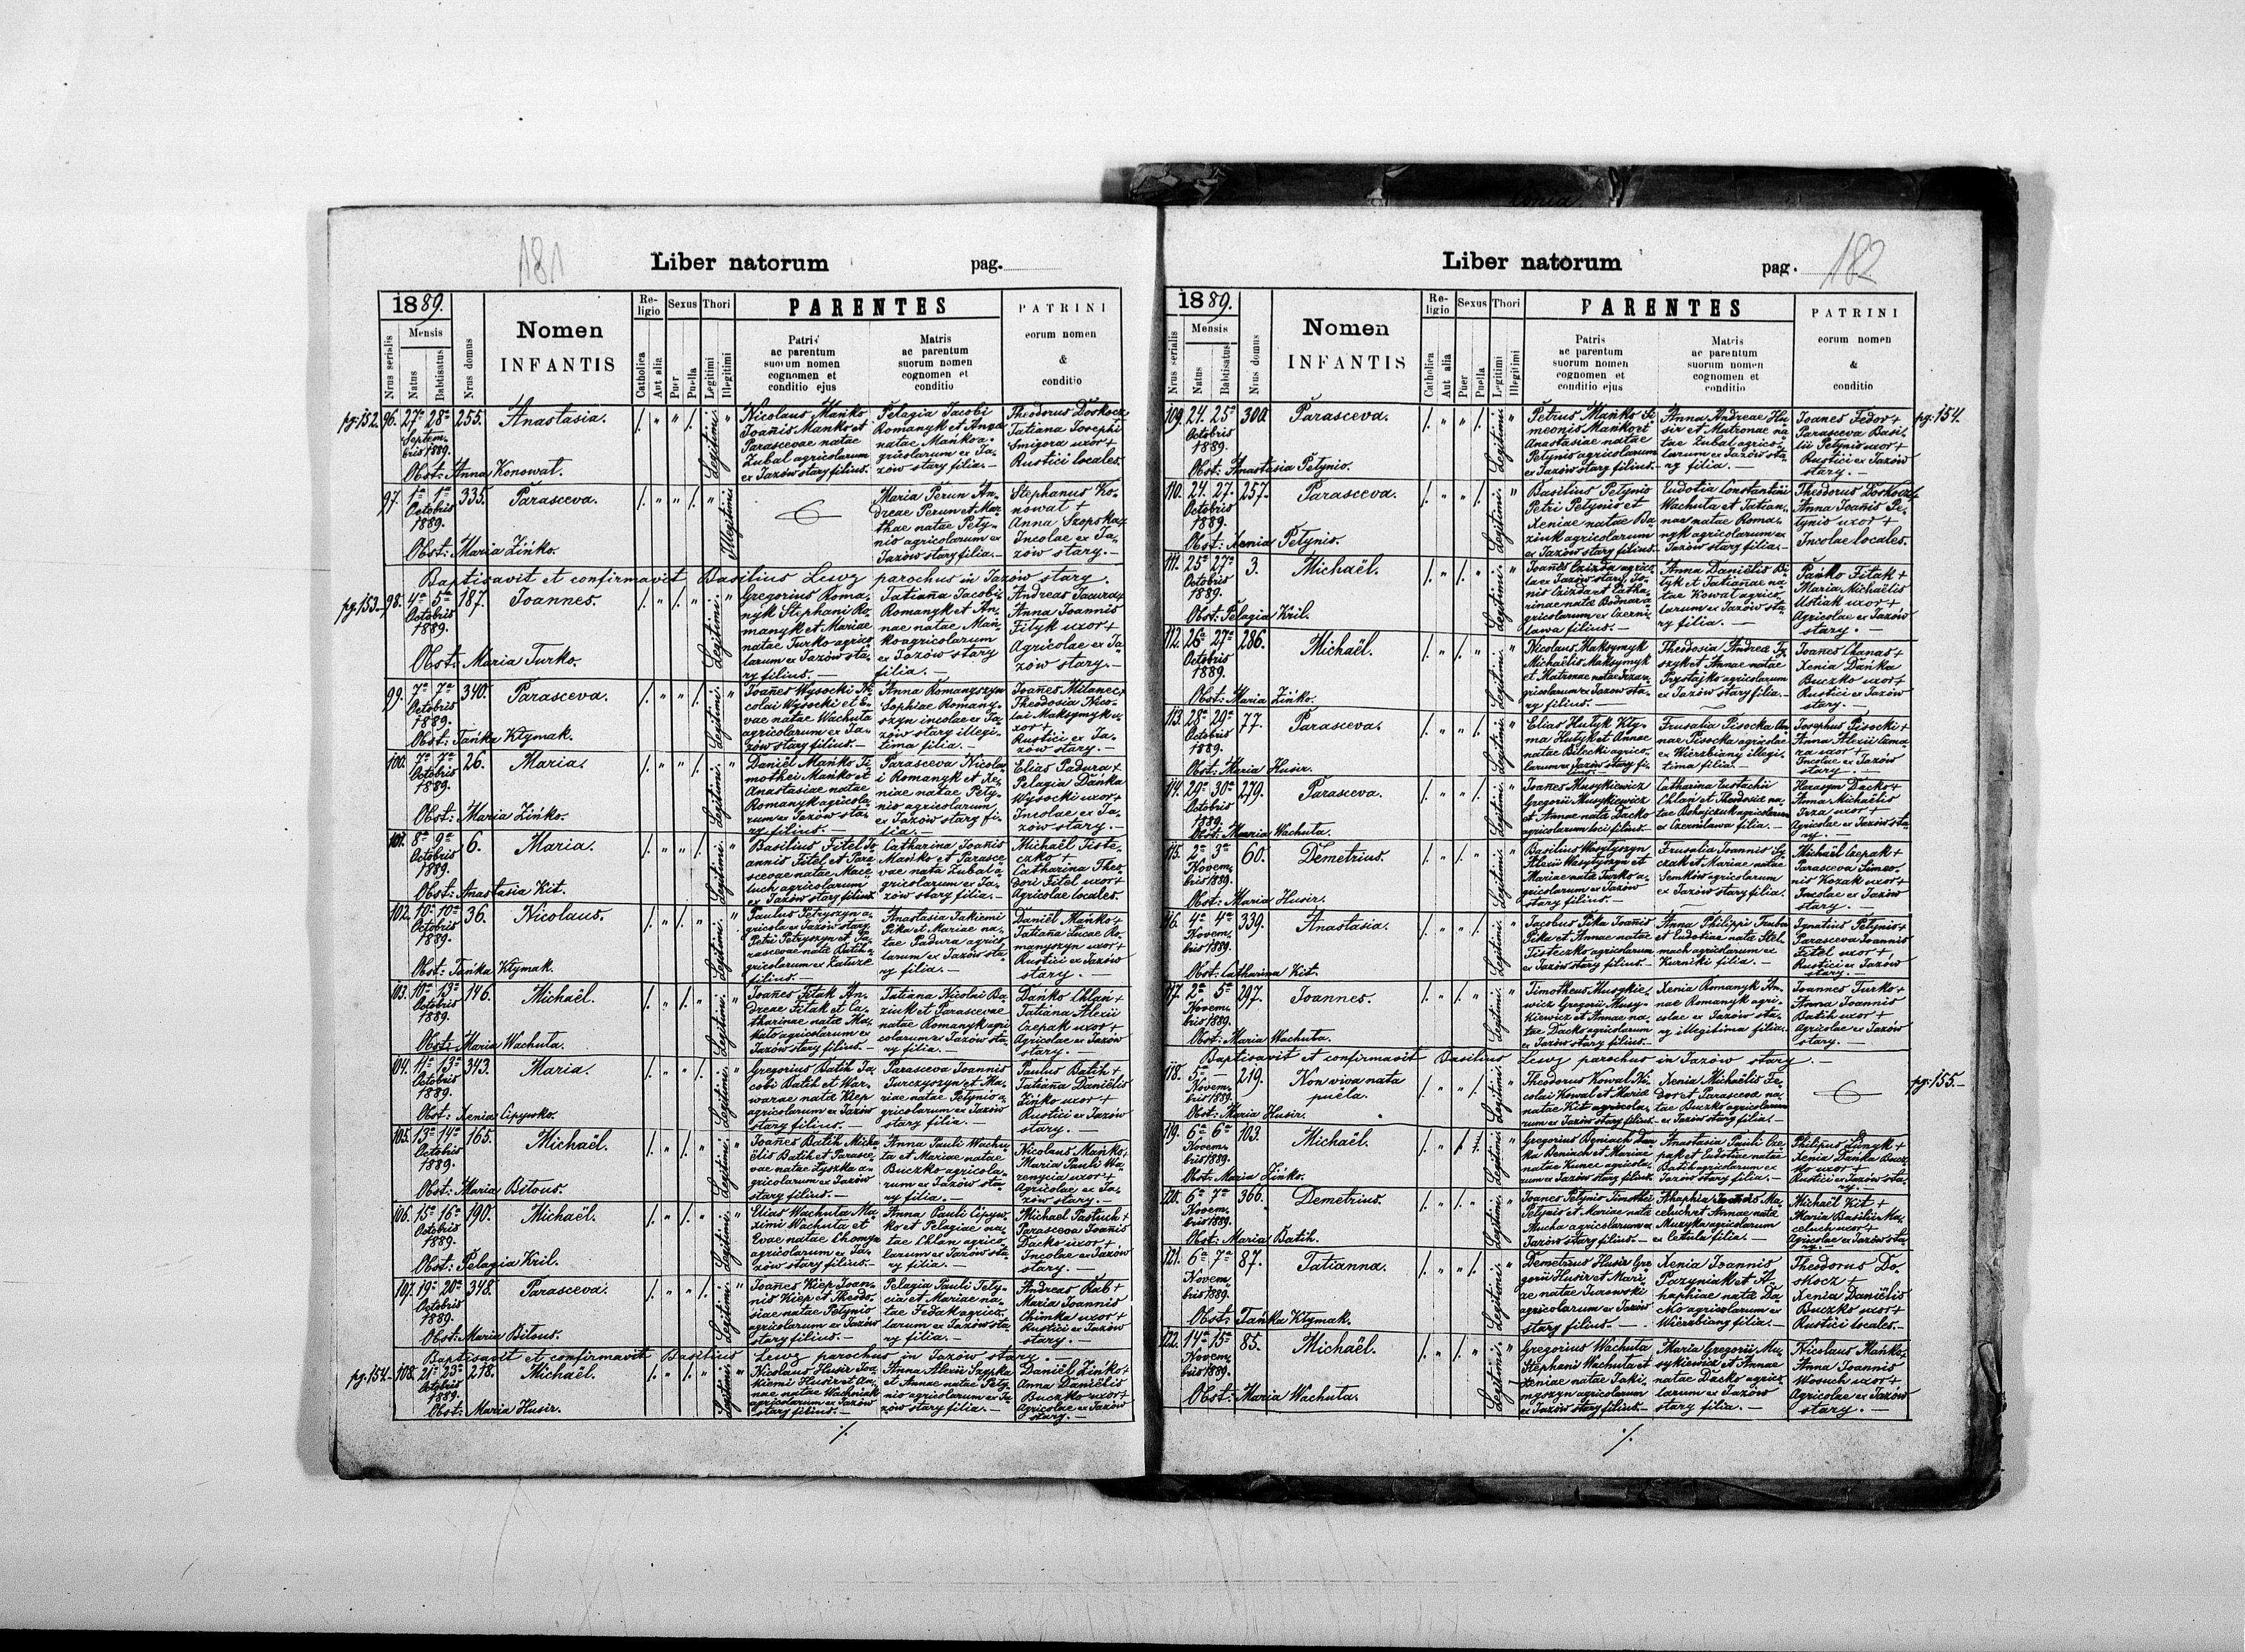 181
Liber natorum pag.
1889.
Nrus serialis
Mensis
Natus
Babtisatus
Nrus domus
Nomen
INFANTIS
Religio
Catholica
Aut alia
Sexus
Puer
Puella
Thori
Legitimi
Illegitimi
PARENTES
Patris
ac parentum
suorum nomen
cognomen et
conditio ejus
Matris
ac parentum
suorum nomen
cognomen et
conditio
PATRINI
eorum nomen
&
conditio
pg. 152.
96. 27a 28a 255. Anastasia.
Septem-
bris 1889.
Obst: Anna Konowat.
Legitimi.
Nicolaus Mańko
Joannis Mańko et
Parascevae natae
Zubal agricolarum
ex Jazów stary filius.
Pelagia Jacobi
Romanyk et Anna
natae Mańko a-
gricolarum ex Ja-
zów stary filia.—
Theodorus Doskocz
Tatiana Josephi
Smigora uxor +
Rustici locales.
97. 1a 1a 335. Parasceva.
Octobris
1889.
Obst: Maria Zińko.
Illegitimi
Maria Perun An-
dreae Perun et Mar-
thae natae Pety-
nio agricolarum ex
Jazów stary filia.—
Stephanus Ko-
nowat +
Anna Szopska +
Incolae ex Ja-
zów stary.—
Baptisavit et confirmavit Basilius Lewy parochus in Jazów stary.
pg. 153.
98. 4a 5a 187. Joannes.
Octobris
1889.
Obst: Maria Turko.
Legitimi.
Gregorius Roma-
nyk Stephani Ro-
manyk et Mariae
natae Turko agrico-
larum ex Jazów sta-
ry filius.—
Tatiana Jacobi
Romanyk et An-
nae natae Mań-
ko agricolarum
ex Jazów stary
filia.—
Andreas Jawra +
Anna Joannis
Fityk uxor +
Agricolae ex Ja-
zów stary.—
99. 7a 7a 340. Parasceva.
Octobris
1889.
Obst: Tańka Ktymak.
Legitimi.
Joanes Wysocki Ni-
colai Wysocki et E-
vae natae Wachuta
agricolarum ex Ja-
zów stary filius.—
Anna Romanyszyn
Sophiae Romany-
szyn incolae ex Ja-
zów stary illegi-
tima filia.—
Joanes Milanec +
Theodosia Nico-
lai Maksymyk u-
xor +
Rustici ex Ja-
zów stary.—
100. 7a 7a 26. Maria.
Octobris
1889.
Obst: Maria Zińko.
Legitimi.
Daniel Mańko Ti-
mothei Mańko et
Anastasiae natae
Romanyk agricola-
rum ex Jazów sta-
ry filius.—
Parasceva Nicola-
i Romanyk et Xe-
niae natae Pety-
nio agricolarum
ex Jazów stary fi-
lia.—
Elias Padura +
Pelagia Dańka
Wysocki uxor +
Incolae ex Ja-
zów stary.—
101. 8a 9a 6. Maria.
Octobris
1889.
Obst: Anastasia Kit.
Legitimi.
Basilius Fitel Jo-
annis Fitel et Para-
scevae natae Mace-
luch agricolarum
ex Jazów stary filius.
Catharina Joanis
Mańko et Parasce-
vae nata Zubal a-
gricolarum ex Ja-
zów stary filia.—
Michaël Tiste-
czko +
Catharina Theo-
dori Fitel uxor +
Agricolae locales.
102. 10a 10a 36. Nicolaus.
Octobris
1889.
Obst: Tańka Ktymak.
Legitimi.
Paulus Petryszyn a-
gricola ex Jazów stary
Petri Petryszyn et Pa-
rascevae nata Batih a-
gricolarum ex Zaturze
filius.
Anastasia Jakiemi
Pika et Mariae na-
tae Padura agrico-
larum ex Jazów sta-
ry filia.—
Daniël Mańko +
Tatiana Lucae Ro-
manyszyn uxor +
Rustici ex Jazów
stary.—
103. 10a 13a 146. Michaël.
Octobris
1889.
Obst: Maria Wachuta.
Legitimi.
Joanes Fitak An-
dreae Fitak et Ca-
tharinae natae Ma-
kato agricolarum ex
Jazów stary filius.—
Tatiana Nicolai Ba-
ziuk et Parascevae
natae Romanyk agri-
colarum ex Jazów sta-
ry filia.—
Dańko Chlań +
Tatiana Alexii
Czepak uxor +
Agricolae ex Jazów
stary.—
104. 11a 13a 343. Maria.
Octobris
1889.
Obst: Xenia Cipywko.
Legitimi.
Gregorius Batih Ja-
cobi Batih et War-
warae nata Kiep
agricolarum ex Jazów
stary filius.—
Parasceva Joannis
Jurczyszyn et Ma-
riae natae Petynio a-
gricolarum ex Jazów
stary filia.—
Paulus Batih +
Tatiana Daniëlis
Zińko uxor +
Rustici ex Jazów
stary.—
105. 13a 14a 165. Michaël.
Octobris
1889.
Obst: Maria Bitous.
Legitimi.
Joanes Batih Micha-
ëlis Batih et Parasce-
vae natae Łyszka a-
gricolarum ex Jazów
stary filius.—
Anna Pauli Wachu-
ta et Mariae natae
Buczko agricola-
rum ex Jazów sta-
ry filia.—
Nicolaus Mańko,
Maria Pauli Wa-
renycia uxor +
Agricolae ex Ja-
zów stary.—
106. 15a 16a 190. Michaël.
Octobris
1889.
Obst: Pelagia Kril.
Legitimi.
Elias Wachuta Ma-
ximi Wachuta et
Evae natae Chomyn
agricolarum ex Ja-
zów stary filius.—
Anna Pauli Cipyw-
ko et Pelagiae na-
tae Chlan agrico-
larum ex Jazów sta-
ry filia.—
Michael Pastuch +
Parasceva Joanis
Dacko uxor +
Incolae ex Jazów
stary.—
107. 19a 20a 348. Parasceva.
Octobris
1889.
Obst: Maria Bitous.
Legitimi.
Joanes Kiep Joan-
nis Kiep et Theodo-
siae natae Petynio
agricolarum ex Jazów
stary filius.—
Pelagia Pauli Tety-
cia et Mariae na-
tae Fedak agrico-
larum ex Jazów sta-
ry filia.—
Andreas Rub +
Maria Joannis
Chimka uxor +
Rustici ex Jazów
stary.—
Baptisavit et confirmavit Basilius Lewy parochus in Jazów stary.—
pg. 154.
108. 21a 23a 218. Michaël.
Octobris
1889.
Obst: Maria Husir.
Legitimi.
Nicolaus Husir Joa-
kiemi Husir et An-
nae natae Wachniak
agricolarum ex Jazów
stary filius.—
Anna Alexii Szopka
et Annae natae Pety-
nio agricolarum ex Ja-
zów stary filia.—
Daniël Zińko +
Anna Daniëlis
Buczko uxor +
Agricolae ex Jazów
stary.—
./.
182
Liber natorum pag.
1889.
Nrus serialis
Mensis
Natus
Babtisatus
Nrus domus
Nomen
INFANTIS
Religio
Catholica
Aut alia
Sexus
Puer
Puella
Thori
Legitimi
Illegitimi
PARENTES
Patris
ac parentum
suorum nomen
cognomen et
conditio ejus
Matris
ac parentum
suorum nomen
cognomen et
conditio
PATRINI
eorum nomen
&
conditio
pg. 154.
109. 24. 25a 300. Parasceva.
Octobris
1889.
Obst: Anastasia Petynio.
Legitimi.
Petrus Mańko Si-
meonis Mańko et
Anastasiae natae
Petynio agricolarum
ex Jazów stary filius.—
Anna Andreae Hu-
sir et Matronae na-
tae Zubal agrico-
larum ex Jazów sta-
ry filia.—
Joanes Fedor +
Parasceva Basi-
lii Petynio uxor +
Rustici ex Jazów
stary.—
110. 24. 27. 257. Parasceva.
Octobris
1889.
Obst: Xenia Petynio.
Legitimi.
Basilius Petynio
Petri Petynio et
Xeniae natae Ba-
ziuk agricolarum
ex Jazów stary filius.—
Eudotia Constantini
Wachuta et Tatian-
nae natae Roma-
nyk agricolarum ex
Jazów stary filia.—
Theodorus Doskocz +
Anna Joanis Pe-
tynio uxor +
Incolae locales.
111. 25a 27a 3. Michaël.
Octobris
1889.
Obst: Pelagia Kril.
Legitimi.
Joanes Czizda agrico-
la ex Jazów stary, Jo-
nis Czizda et Catha-
rinae natae Bodnar a-
gricolarum ex Czerni-
lawa filius.—
Anna Daniëlis Bi-
tyk et Tatianae na-
tae Kowal agrico-
larum ex Jazów sta-
ry filia.—
Pańko Fitak +
Maria Michaëlis
Ustiak uxor +
Agricolae ex Jazów
stary.
112. 26a 27a 286. Michaël.
Octobris
1889.
Obst: Maria Zińko.
Legitimi.
Nicolaus Maksymyk
Michaëlis Maksymyk
et Matronae natae
gricolarum ex Jazów sta-
ry filius.—
Theodosia Andreae Ty-
szyk et Annae natae
Prystajko agricolarum
ex Jazów stary filia.—
Joanes Chanas +
Xenia Dańka
Buczko uxor +
Rustici ex Jazów
stary.—
113. 28a 29a 77. Parasceva.
Octobris
1889.
Obst: Maria Husir.
Legitimi.
Elias Hutyk Kty-
ma Hutyk et Annae
natae Bilecki agrico-
larum ex Jazów stary fi-
lius.—
Frusalia Pisocka An-
nae Pisocka agricolae
ex Wierzbiany illegi-
tima filia.—
Josephus Pisocki +
Anna Alexii Cama-
ra uxor +
Incolae ex Jazów
stary.—
114. 29a 30a 279. Parasceva.
Octobris
1889.
Obst: Maria Wachuta.
Legitimi.
Joanes Musykiewicz
Gregorii Musykiewicz
et Annae nata Dacko
agricolarum loci filius.—
Catharina Eustachii
Chlań et Theodosiae na-
tae Bohajczuk agricolarum
ex Czernilawa filia.—
Harasym Dacko +
Anna Michaëlis
Irza uxor +
Agricolae ex Jazów sta-
ry.—
115. 2a 3a 60. Demetrius.
Novem-
bris 1889.
Obst: Maria Husir.
Legitimi.
Basilius Wasytyszyn
Alexii Wasytyszyn et
Mariae nata Turko a-
gricolarum ex Jazów
stary filius.—
Frusalia Joannis Sy-
czak et Mariae natae
Semków agricolarum
ex Jazów stary filia.
Michaël Czepak +
Parasceva Simeo-
nis Kozak uxor +
Incolae ex Jazów
stary.—
116. 4a 4a 339. Anastasia.
Novem-
bris 1889.
Obst: Catharina Kit.
Legitimi.
Jacobus Pika Joanis
Pika et Annae natae
Tisteczko agricolarum
ex Jazów stary filius.—
Anna Philippi
et Eudotiae nata Stel-
mach agricolarum ex
Kurniki filia.—
Ignatius Petynio +
Parasceva Joannis
Fitel uxor +
Rustici ex Jazów
stary.—
117. 2a 5a 297. Joannes.
Novem-
bris 1889.
Obst: Maria Wachuta.
Legitimi.
Timotheus Musykie-
wicz Gregorii Musy-
kiewicz et Annae na-
tae Dacko agricolarum
ex Jazów stary filius.—
Xenia Romanyk An-
nae Romanyk agri-
colae ex Jazów sta-
ry illegitima filia.—
Joannes Turko +
Anna Joannis
Batih uxor +
Agricolae ex Jazów
stary.—
Baptisavit et confirmavit Basilius Lewy parochus in Jazów stary.—
pg. 155.—
118. 5a — 219. Non viva nata
Novem- puela.
bris 1889.
Obst: Maria Husir.
Legitimi.
Theodorus Kowal Ni-
colai Kowal et Mariae
natae Kit agricola-
rum ex Jazów stary filius.—
Xenia Michaëlis Fe-
dor et Parasceva na-
tae Buczko agricolarum
ex Jazów stary filia.—
119. 6a 6a 103. Michaël.
Novem-
bris 1889.
Obst: Maria Zińko.
Legitimi.
Gregorius Beniach Dan-
ka Beniach et Mariae
natae Kunec agricola-
rum ex Jazów stary filius.
Anastasia Pauli Cze-
pak et Eudotiae natae
Batih agricolarum ex
Jazów stary filia.—
Philipus Łudnyk +
Xenia Dańka Bucz-
ko uxor +
Rustici ex Jazów sta-
ry.—
120. 6a 7a 366. Demetrius.
Novem-
bris 1889.
Obst: Maria Batih.
Legitimi.
Joanes Petynio Timothei
Petynio et Mariae nata
Mucha agricolarum ex
Jazów stary filius.—
Ahaphia Joannis Ma-
celuch et Annae nata
Muzyka agricolarum
ex Cetula filia.—
Michaël Kit +
Maria Basilii Ma-
celuch uxor +
Agricolae ex Jazów sta-
ry.—
121. 6a 7a 87. Tatianna.
Novem-
bris 1889.
Obst: Tańka Ktymak.
Legitimi.
Demetrius Husir Gre-
gorii Husir et Mari-
ae natae Turowski
agricolarum ex Jazów
stary filius.—
Xenia Joannis
Pazyniak et A-
haphiae natae Da-
cko agricolarum ex
Wierzbiany filia.—
Theodorus Do-
skocz +
Xenia Daniëlis
Buczko uxor +
Rustici locales.—
122. 14a 15a 85. Michaël.
Novem-
bris 1889.
Obst: Maria Wachuta.
Legitimi.
Gregorius Wachuta
Stephani Wachuta et
Xeniae natae Jaki-
myszyn agricolarum
ex Jazów stary filius.—
Maria Gregorii Mu-
sykiewicz et Annae
natae Dacko agrico-
larum ex Jazów
stary filia.—
Nicolaus Mańko,
Anna Joannis
Wosuch uxor +
Agricolae ex Jazów
stary.—
./.